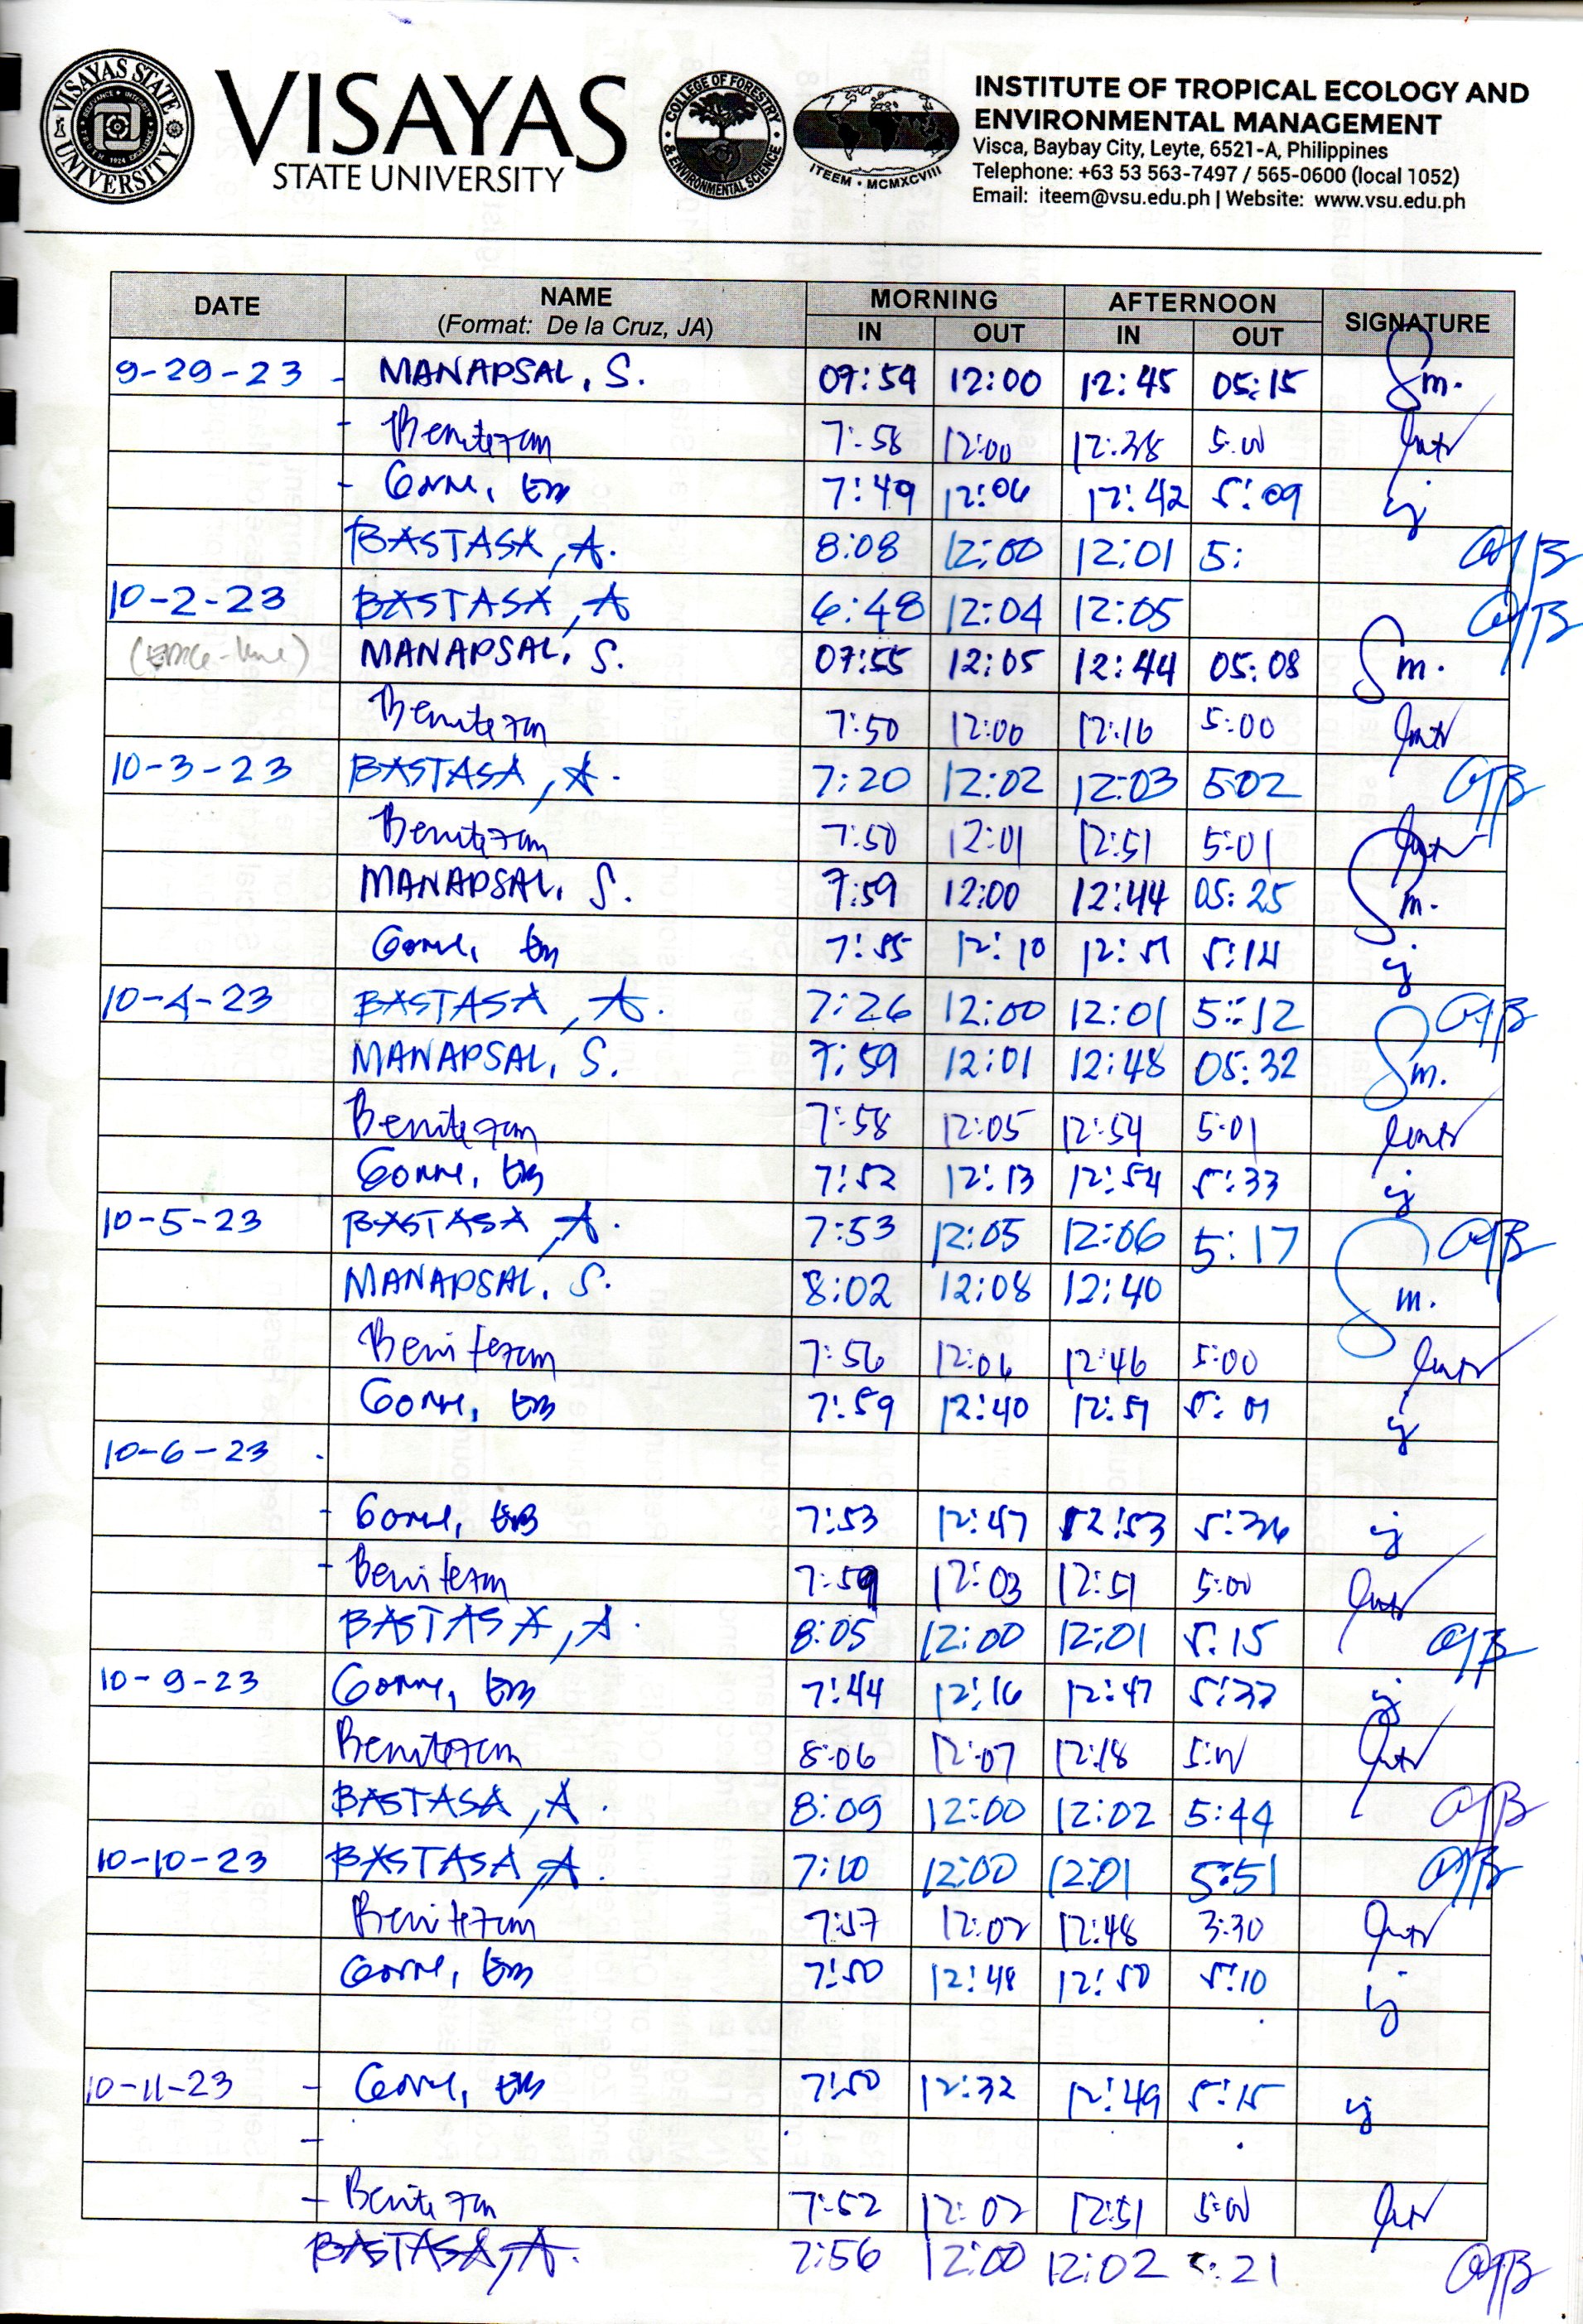 VISAYAS STATE UNIVERSITY
VISAYAS
STATE UNIVERSITY
COLLEGE OF FORESTRY & ENVIRONMENTAL SCIENCE
ITEEM • MCMXCVIII
INSTITUTE OF TROPICAL ECOLOGY AND
ENVIRONMENTAL MANAGEMENT
Visca, Baybay City, Leyte, 6521-A, Philippines
Telephone: +63 53 563-7497 / 565-0600 (local 1052)
Email: iteem@vsu.edu.ph | Website: www.vsu.edu.ph
DATE NAME MORNING AFTERNOON SIGNATURE
(Format: De la Cruz, JA) IN OUT IN OUT
9-29-23 - MANAPSAL, S. 07:59 12:00 12:45 05:15 Sm.
- 7:58 12:00 12:38 5:00
- Gorne, EB 7:49 12:06 12:42 5:09
BASTASA, A. 8:08 12:00 12:01 5:
10-2-23 BASTASA, A 6:48 12:04 12:05
MANAPSAL, S. 07:55 12:05 12:44 05:08 Sm.
7:50 12:00 12:16 5:00
10-3-23 BASTASA, A. 7:20 12:02 12:03 502
7:50 12:01 12:51 5:01
MANAPSAL, S. 7:59 12:00 12:44 05:25 Sm.
Gorne, EB 7:55 12:10 12:51 5:14
10-4-23 BASTASA, A. 7:26 12:00 12:01 5:12
MANAPSAL, S. 7:59 12:01 12:48 05:32 Sm.
7:58 12:05 12:54 5:01
Gorne, EB 7:52 12:13 12:54 5:33
10-5-23 BASTASA, A. 7:53 12:05 12:06 5:17
MANAPSAL, S. 8:02 12:08 12:40 Sm.
7:56 12:06 12:46 5:00
Gorne, EB 7:59 12:40 12:51 5:01
10-6-23
- Gorne, EB 7:53 12:47 12:53 5:36
- 7:59 12:03 12:51 5:00
BASTASA, A. 8:05 12:00 12:01 5:15
10-9-23 Gorne, EB 7:44 12:16 12:47 5:33
8:06 12:07 12:18 5:00
BASTASA, A. 8:09 12:00 12:02 5:44
10-10-23 BASTASA, A. 7:10 12:00 12:01 5:51
7:57 12:02 12:48 3:30
Gorne, EB 7:50 12:48 12:50 5:10
10-11-23 - Gorne, EB 7:50 12:32 12:49 5:15
- 7:52 12:02 12:51 5:00
BASTASA, A. 7:56 12:00 12:02 21